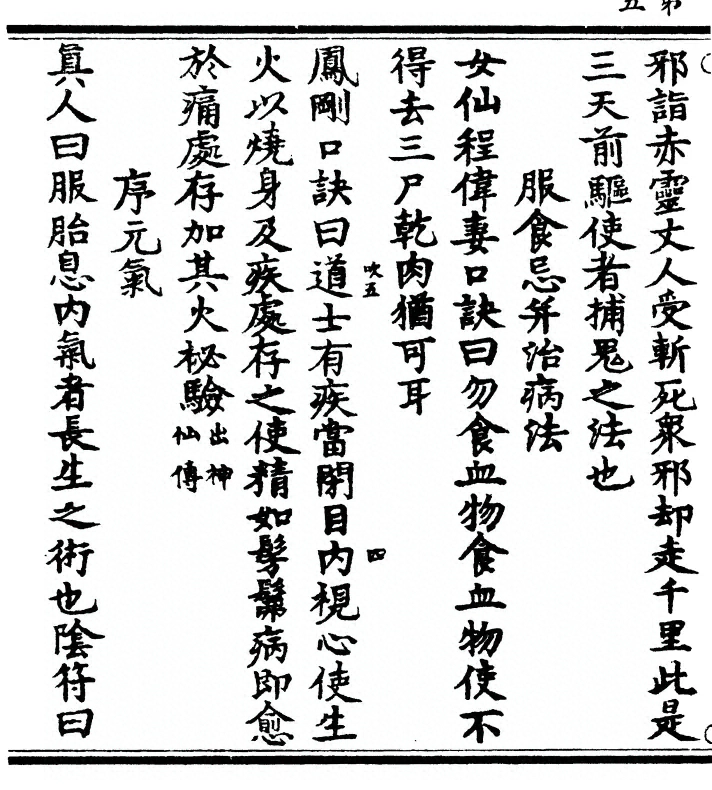 第五
邪詣赤靈丈人受斬死衆邪却走千里此是
三天前驅使者捕鬼之法也
服食忌并治病法
女仙程偉妻口訣曰勿食血物食血物使不
得去三尸乾肉猶可耳
鳳剛口訣曰道士有疾當閉目内視心使生
火以燒身及疾處存之使精如髣髴病即愈
於痛處存加其火祕驗出神仙傳
序元氣
真人曰服胎息内氣者長生之術也陰符曰
吹五
四